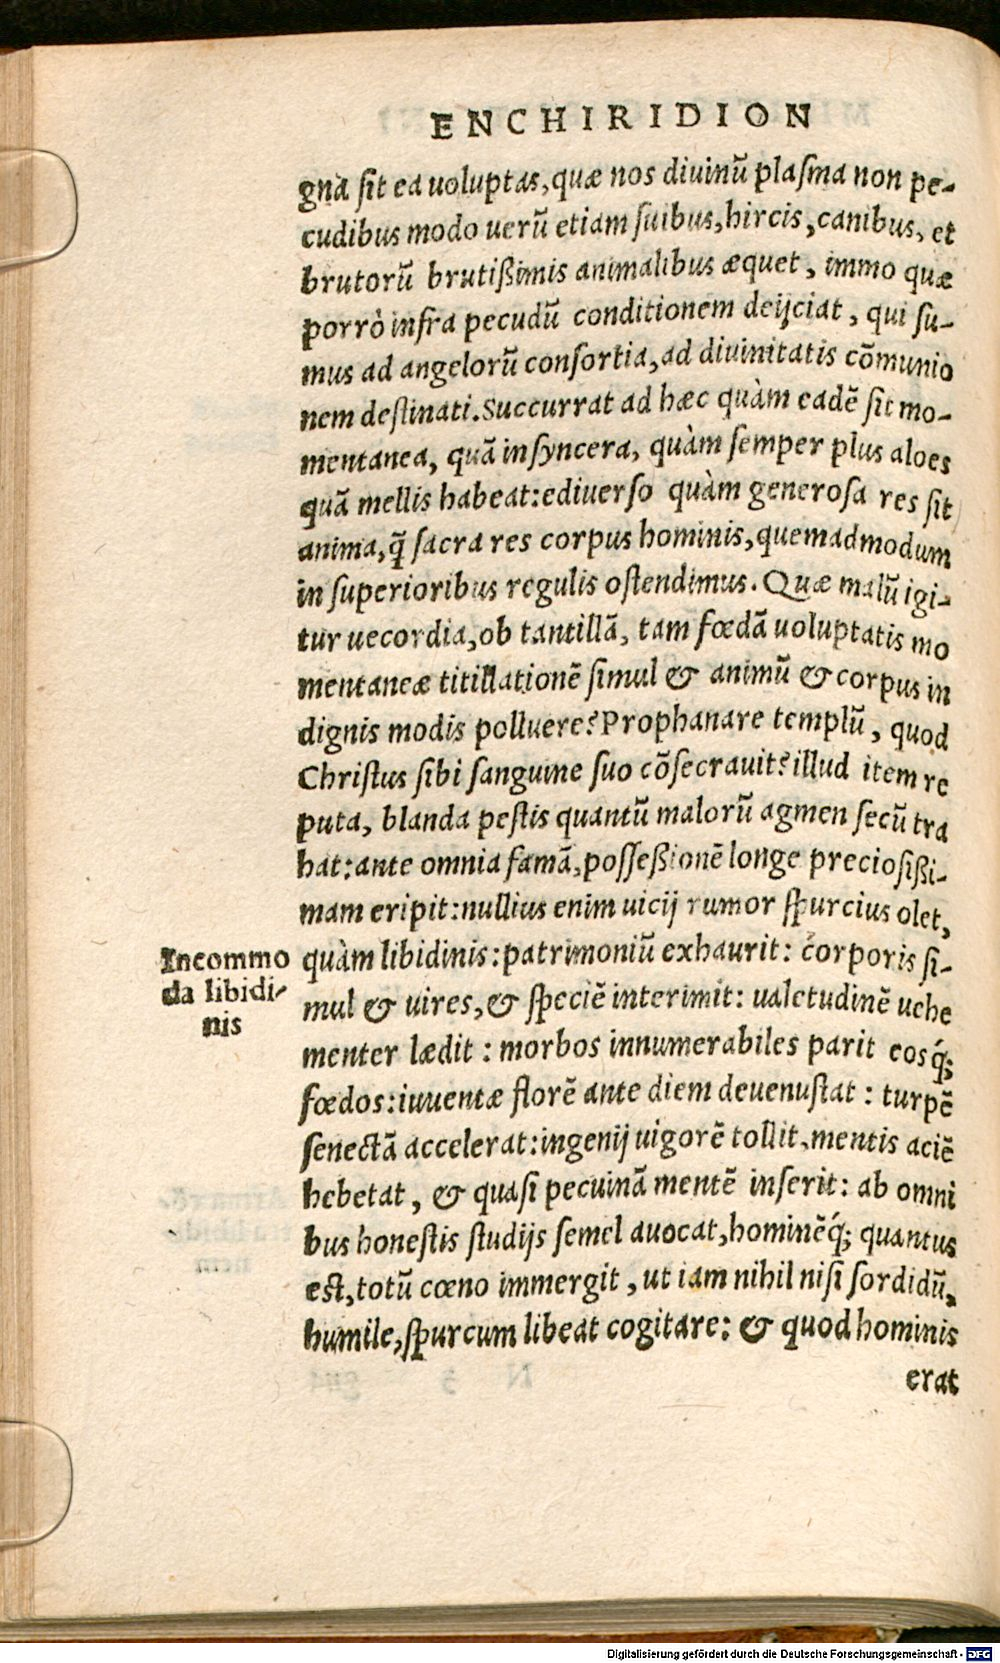 ENCHIRIDION
gna sit ea uoluptas, quæ nos diuinū plasma non pe-
cudibus modo uerū etiam suibus, hircis, canibus, et
brutorū brutißimis animalibus æquet, immo quæ
porrò infra pecudū conditionem deijciat, qui su-
mus ad angelorū consortia, ad diuinitatis cōmunio
nem destinati. Succurrat ad hæc quàm eadē sit mo-
mentanea, quā insyncera, quàm semper plus aloes
quā mellis habeat: ediuerso quàm generosa res sit
anima, q̃ sacra res corpus hominis, quemadmodum
in superioribus regulis ostendimus. Quæ malū igi-
tur uecordia, ob tantillā, tam fœdā uoluptatis mo
mentaneæ titillationē simul & animū & corpus in
dignis modis polluere? Prophanare templū, quod
Christus sibi sanguine suo cōsecrauit? illud item re
puta, blanda pestis quantū malorū agmen secū tra
hat: ante omnia famā, possessionē longe preciosißi-
mam eripit: nullius enim uicij rumor spurcius olet,
Incommo
da libidi-
nis
quàm libidinis: patrimoniū exhaurit: corporis si-
mul & uires, & speciē interimit: ualetudinē uehe
menter lædit: morbos innumerabiles parit eosq́;
fœdos: iuuentæ florē ante diem deuenustat: turpē
senectā accelerat: ingenij uigorē tollit, mentis aciē
hebetat, & quasi pecuinā mentē inserit: ab omni
bus honestis studijs semel auocat, hominēq́; quantus
est, totū cœno immergit, ut iam nihil nisi sordidū,
humile, spurcum libeat cogitare: & quod hominis
erat
Digitalisierung gefördert durch die Deutsche Forschungsgemeinschaft - DFG